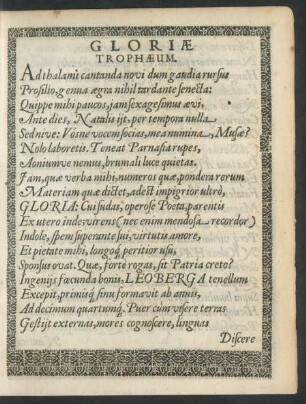 GLORIÆ
TROPHÆUM.
Ad thalami cantanda novi dum gaudia rursus
Prosilio, genua ægra nihil tardante senecta:
Quippe mihi paucos, jam sexagesimus ævi,
Ante dies, Natalis ijt, per tempora nulla.
Sed nive: Vósne vocem socias, mea numina, Musæ?
Nolo laboretis. Teneat Parnasia rupes,
Aoniumve nemus, brumali luce quietas.
Jam, quæ verba mihi, numeros quæ, pondera rerum
Materiam quæ dictet, adest impigrior ultrò,
GLORIA: Cui sudas, operose Poeta, parentis
Ex utero inde virens (nec enim mendosa recordor)
Indole, spem superante sui, virtutis amore,
Et pietate mihi, longoq́; peritior usu,
Sponsus ovat. Quæ, forte rogas, sit Patria creto?
Ingenijs fæcunda bonis LEOBERGA tenellum
Excepit, primùq́; sinu formavit ab annis,
Ad decimum quartumq́;. Puer cùm visere terras
Gestijt externas, mores cognoscere, linguas
Discere